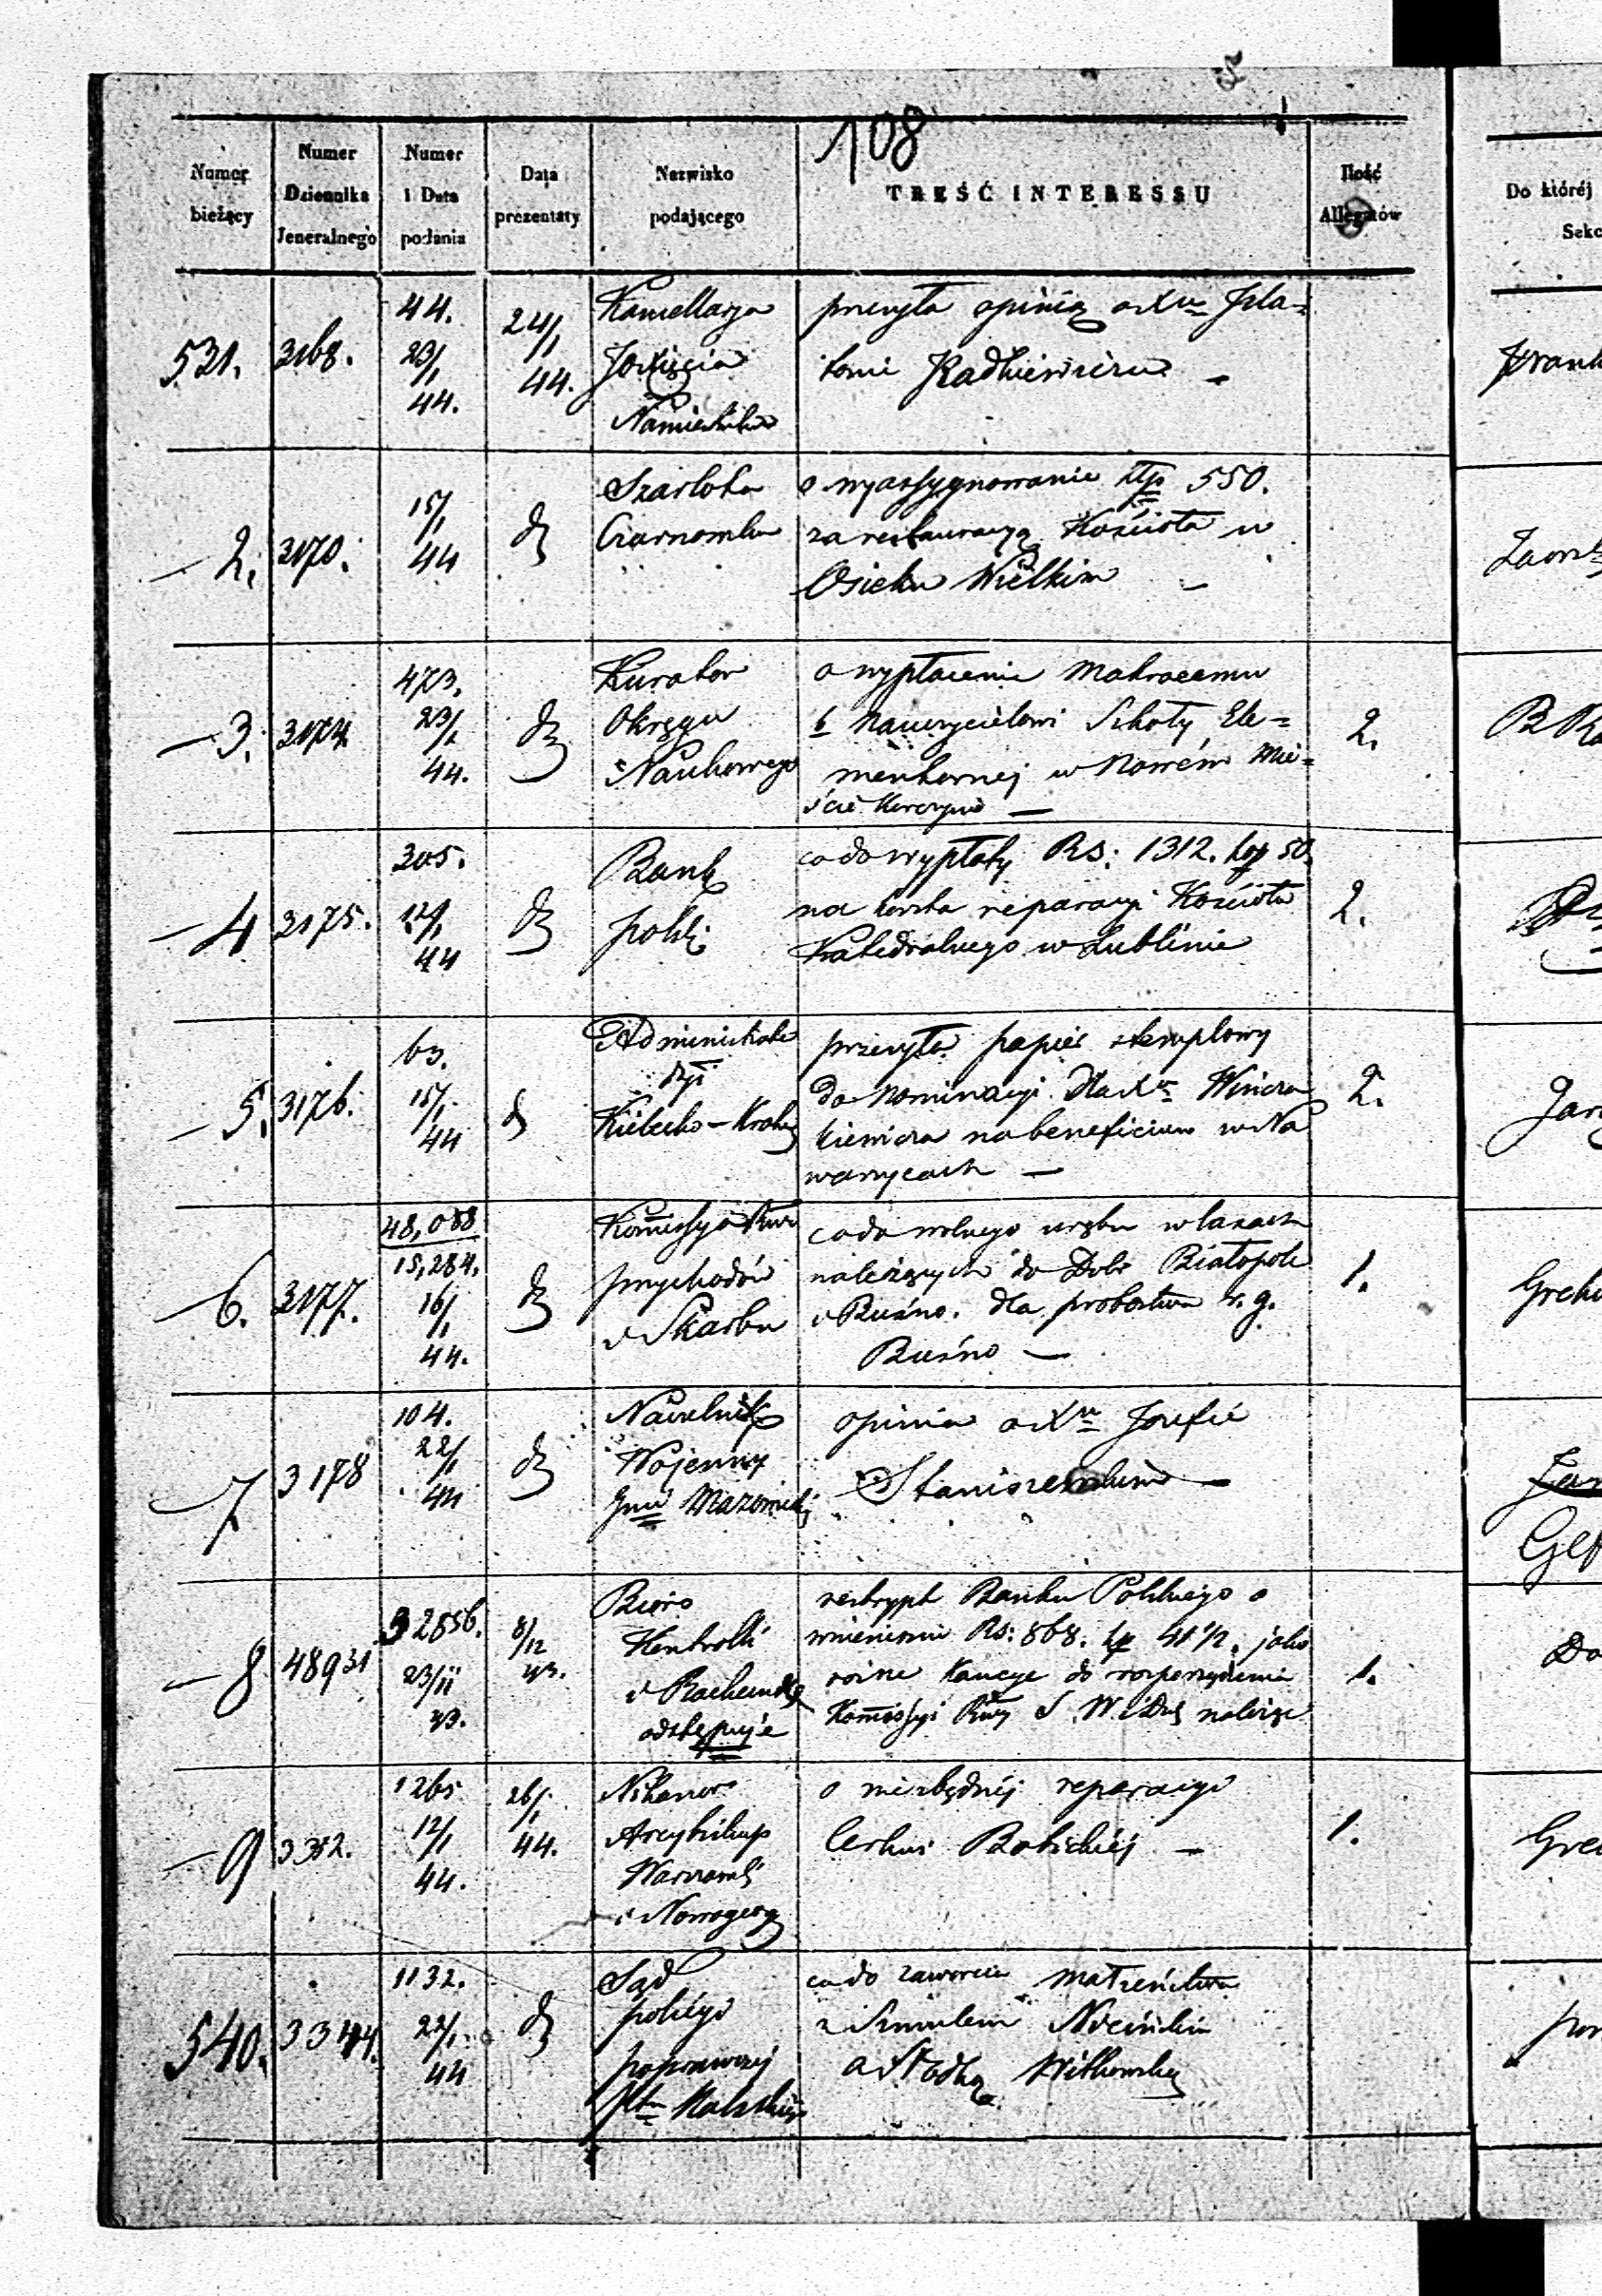 108
Numer bieżący
Numer Dziennika Jeneralnego
Numer i Data podania
Data prezentaty
Nazwisko podającego
TREŚĆ INTERESSU
Ilość Allegatów
Do której
Sekc
531. 3168.
44. 23/1 44.
24/1 44.
Kancellarya
Jo Xięcia
Namiestnika
przesyła opinią o Xu
Radkiewiczu —
— 2. 3170.
15/1 44
Szarlota
o wyassygnowanie złp 550.
za restauracyą Kościoła w
Osieku Wielkim —
— 3. 3174.
473. 23/1 44.
Kurator
Okręgu
Naukowego
o wypłacenie
b nauczycielowi Szkoły Ele=
mentarnej w Nowém Mie=
ście Korczynie —
2.
— 4 3175.
305. 12/1 44
Bank
polski
co do wypłaty Rs: 1312. kop 50.
na koszta reparacyi Kościoła
Katedralnego w Lublinie
2.
— 5. 3176.
63. 15/1 44
Administrator
dyi
Kielecko-Krak
przesyła papier stemplowy
do nominacyi dla Xa
kiewicza na beneficium w Na
warzycach —
2.
— 6. 3177.
48,088
15,284.
16/1 44.
Kommissya Rzwa
przychodów
i Skarbu
co do wolnego wrębu w lasach
należących do Dóbr Białopole
i Buśno. dla probostwa r. g.
Buśno —
1.
— 7. 3178
104. 22/1 44
Naczelnik
Wojenny
Gnii Mazowiecki
opinia o Xu Józefie
Staniszewskim —
— 8 48931
32856. 23/11 43.
8/12 43.
Bióro
Kontrolli
i Rachunk
odstępuje
reskrypt Banku Polskiego o
wniesieniu Rs: 868. kop 41 1/2. jako
różne kaucye do rozporządzenia
Kommissyi Rzwy S. W. i Duch należące
1.
— 9 3312.
1265 12/1 44.
26/1 44.
Nikanor
Arcybiskup
Warszawski
i Nowogeorg
o niezbędnéj reparacyi
Cerkwi Babickiéj —
1.
540. 3344.
1132. 22/1 44
Sąd
policyi
poprawczej
co do zawarcia małżeństwa
z Szmulem
a Witkowską